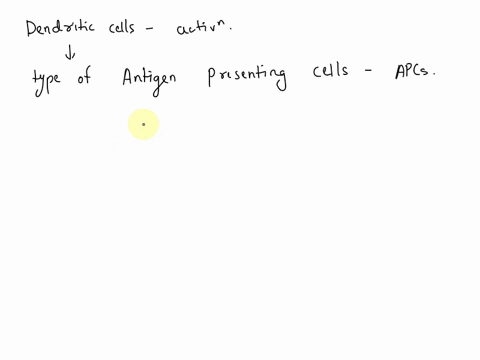 Dendritic cells - activⁿ.
↓
type of Antigen presenting cells - APCs.